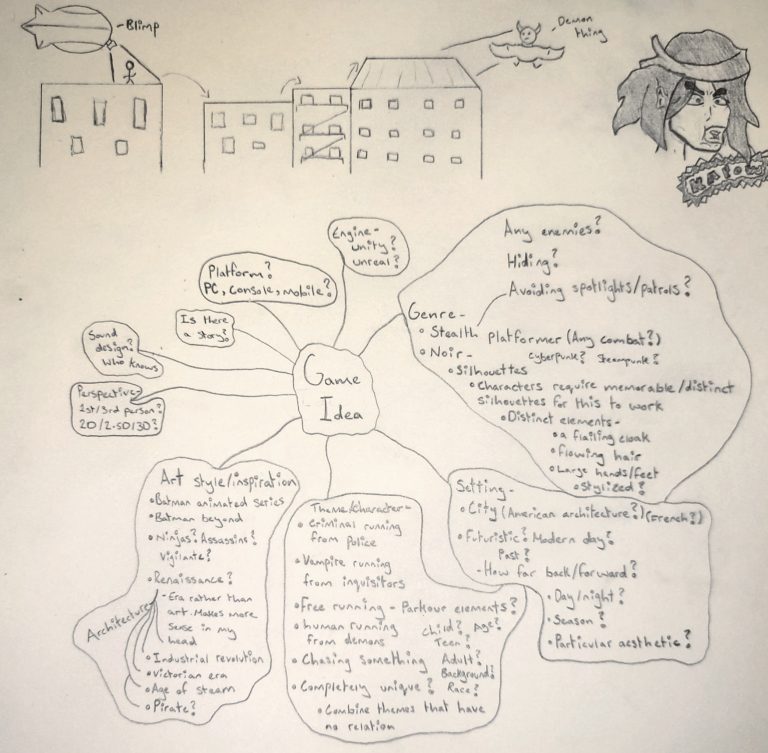 Blimp
Demon
thing
KAPOW
Engine-
unity?
unreal?
Platform?
PC, Console, mobile?
Is there
a story?
Sound
design?
Who knows
Perspective-
1st/3rd person?
2D/2.5D/3D?
Game
Idea
Any enemies?
Hiding?
Avoiding spotlights/patrols?
Genre-
Stealth platformer (Any combat?)
Noir- Cyberpunk? Steampunk?
Silhouettes
Characters require memorable/distinct
silhouettes for this to work
Distinct elements-
a flailing cloak
Flowing hair
Large hands/feet
Stylized?
Setting-
City (American architecture?) (French?)
Futuristic? Modern day?
Past?
-How far back/forward?
Day/night?
Season?
Particular aesthetic?
Theme/Character-
Criminal running
from police
Vampire running
from inquisitors
Free running - Parkour elements?
human running
from demons
Child? Age?
Teen?
Chasing something Adult?
Background?
Completely unique? Race?
Combine themes that have
no relation
Art style/inspiration
Batman animated series
Batman beyond
Ninjas? Assassins?
Vigilante?
Renaissance?
-Era rather than
art. Makes more
sense in my
head
Architecture
Industrial revolution
Victorian era
Age of steam
Pirate?